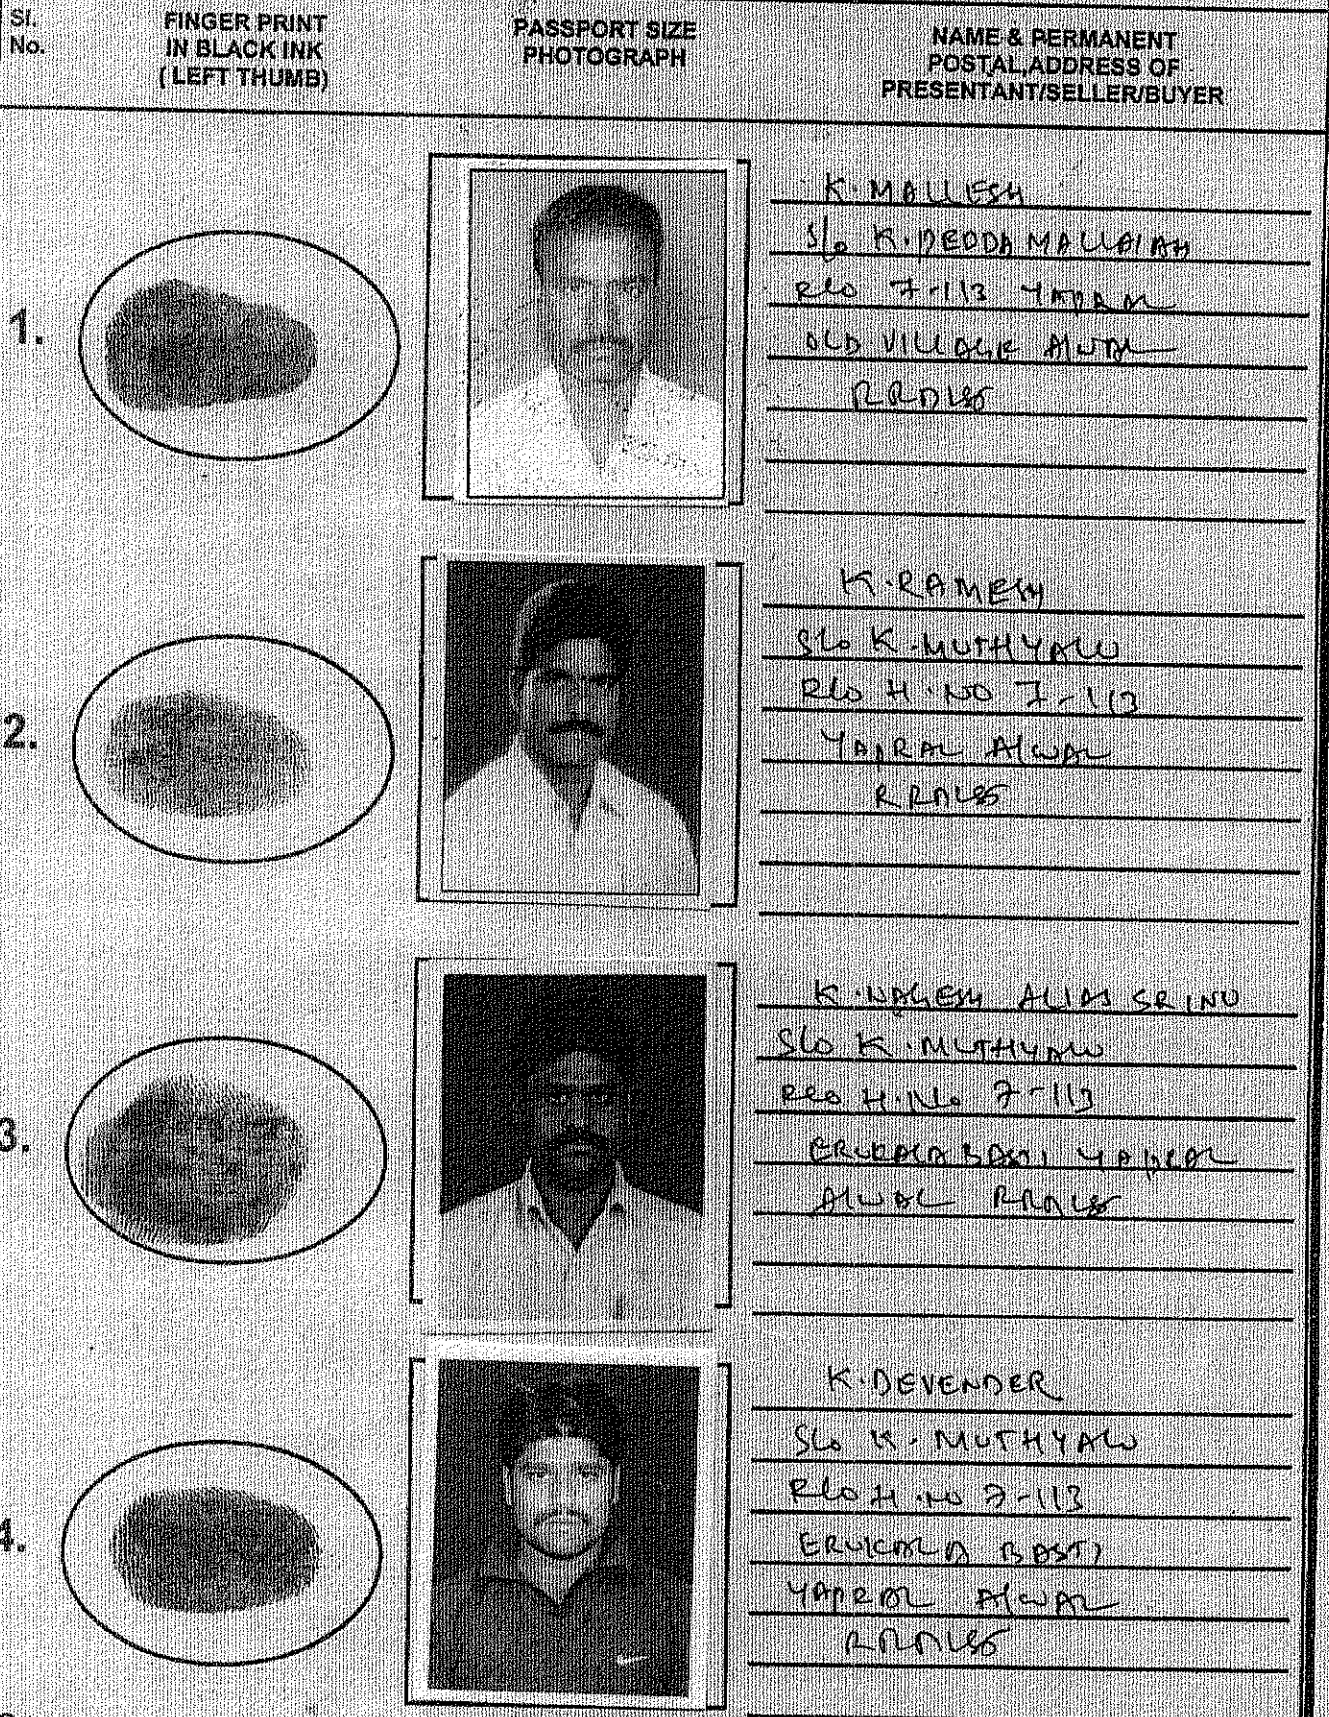 Sl.
No.
FINGER PRINT
IN BLACK INK
(LEFT THUMB)
PASSPORT SIZE
PHOTOGRAPH
NAME & PERMANENT
POSTAL ADDRESS OF
PRESENTANT/SELLER/BUYER
1.
K. MALLESH
S/o K. PEDDA MALLAIAH
R/o 7-113 YAPRAL
OLD VILLAGE Alwal
RRDist
2.
K. RAMESH
S/o K. MUTHYALU
R/o H. NO 7-113
YAPRAL Alwal
RRDist
3.
K. NAGESH ALIAS SRINU
S/o K. MUTHYALU
R/o H. No 7-113
ERUKALA BASTI YAPRAL
Alwal RRDist
4.
K. DEVENDER
S/o K. MUTHYALU
R/o H. NO 7-113
ERUKALA BASTI
YAPRAL Alwal
RRDist